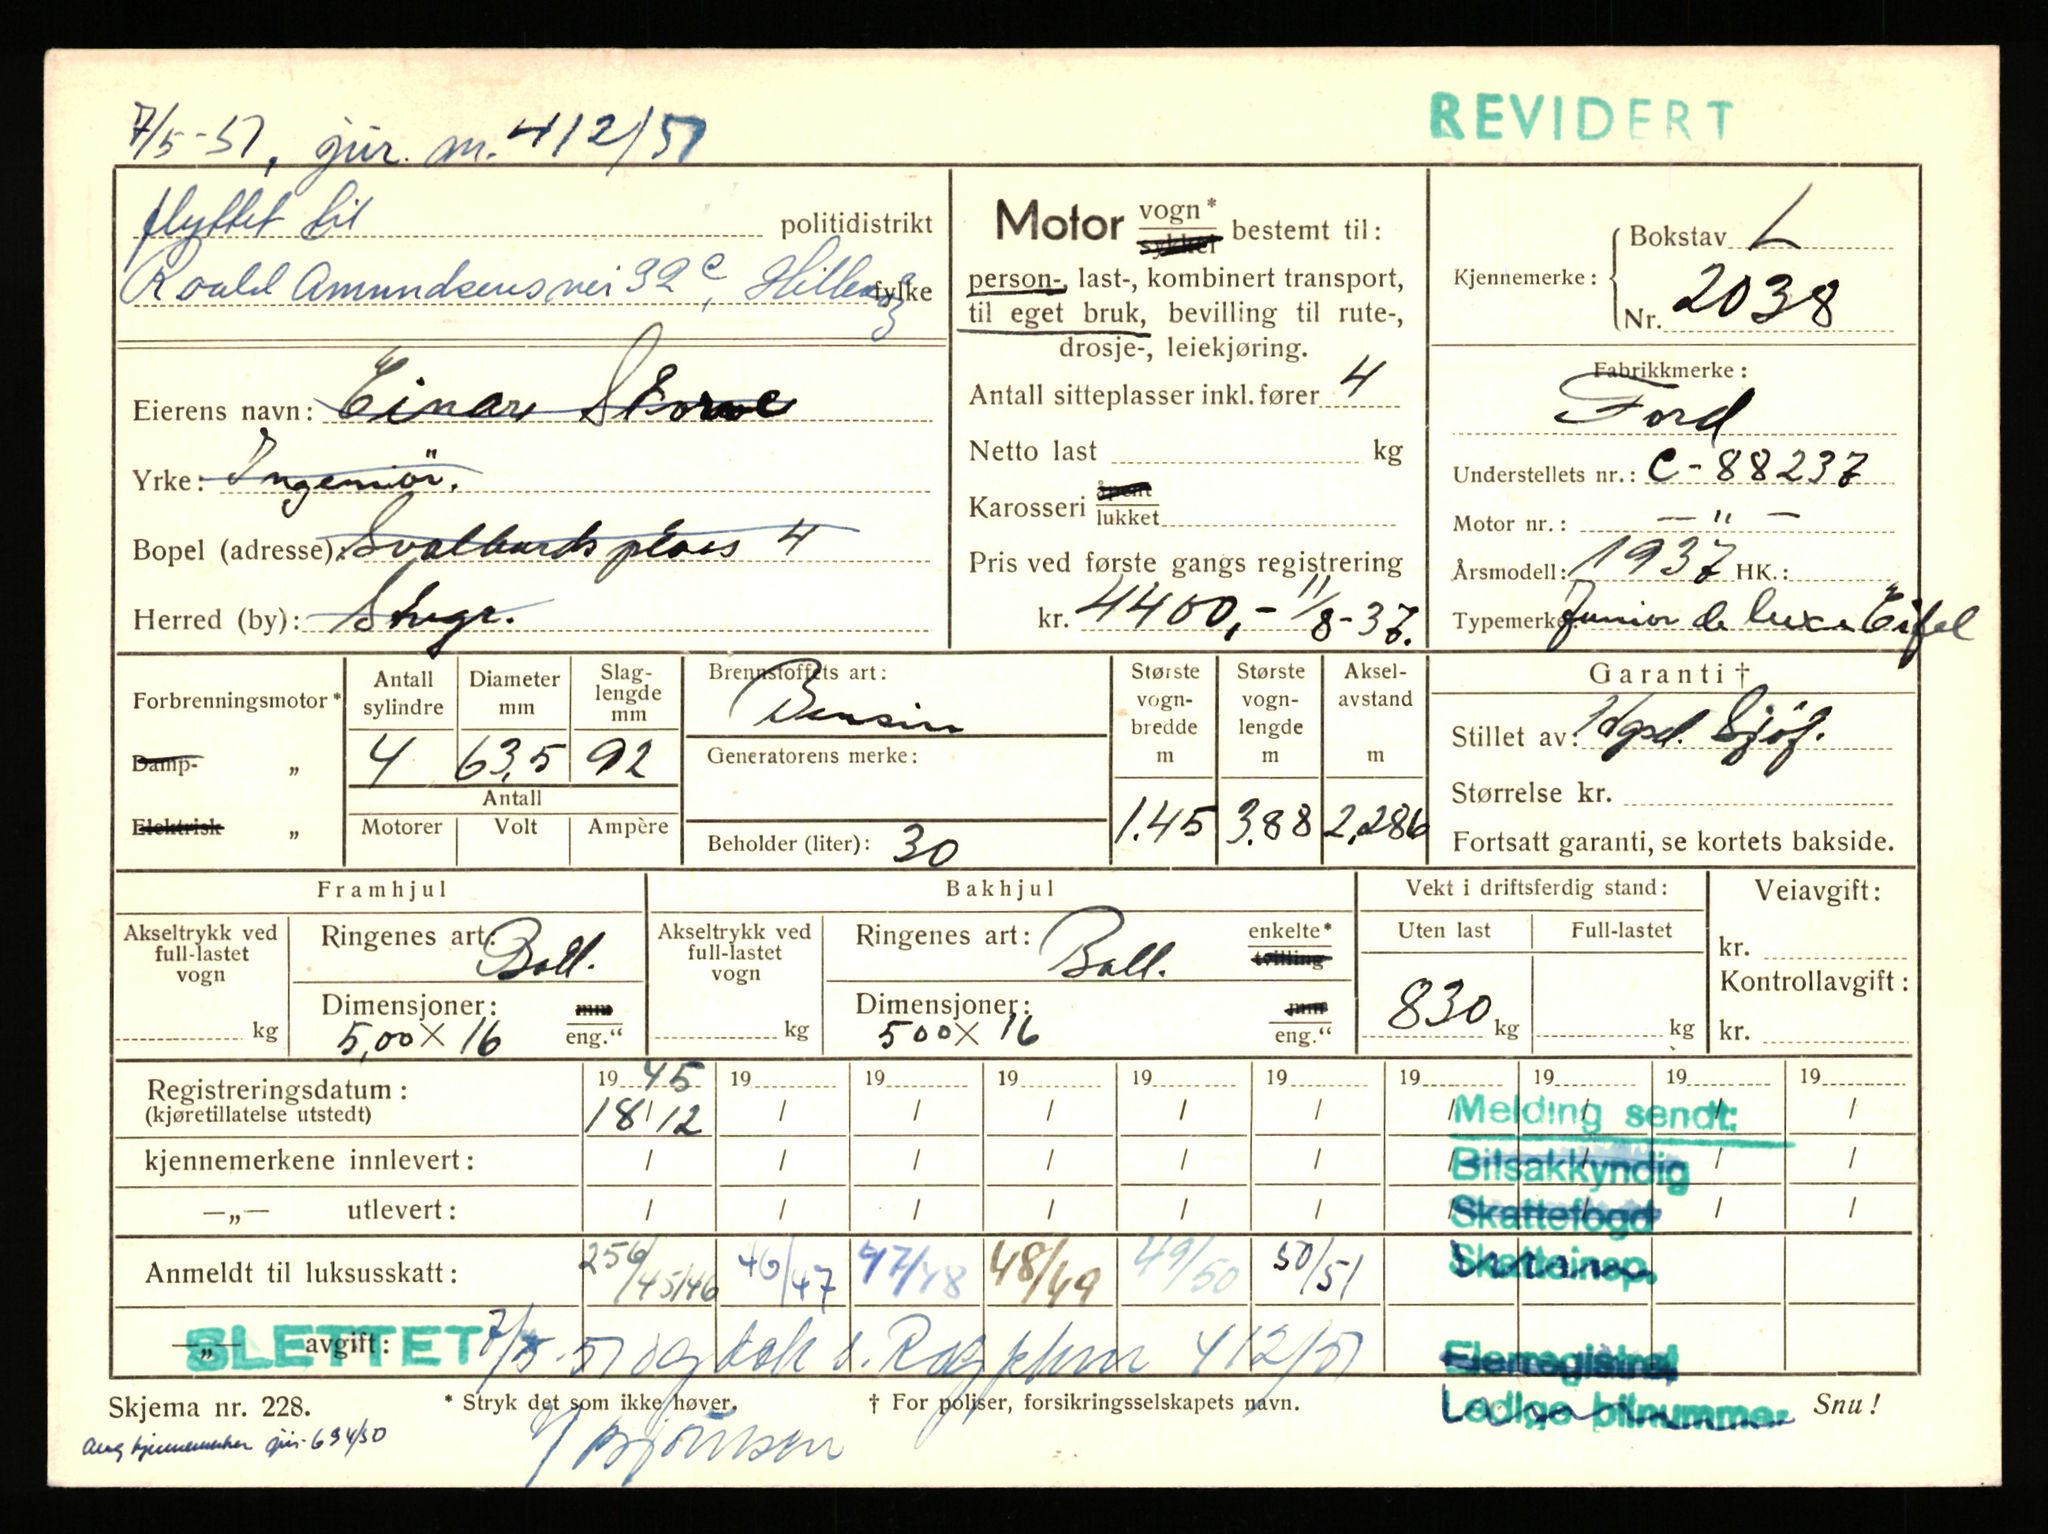 REVIDERT
7/5-51, jnr. m. 412/51
flyttet til politidistrikt
Roald Amundsens vei 32 c, Hillevåg fylke
Eierens navn: Einar Storve
Yrke: Ingeniör.
Bopel (adresse): Svalbards plass 4
Herred (by): Stvgr.
Motor vogn* sykkel bestemt til:
person-, last-, kombinert transport,
til eget bruk, bevilling til rute-,
drosje-, leiekjøring.
Antall sitteplasser inkl. fører 4
Netto last kg
Karosseri åpent lukket
Pris ved første gangs registrering
kr. 4400,- 11/8-37.
Kjennemerke: Bokstav L
Nr. 2038
Fabrikkmerke:
Ford
Understellets nr.: C-88237
Motor nr.: — " —
Årsmodell: 1937 HK.:
Typemerke: Junior de luxe Eifel
Forbrenningsmotor*
Damp- „
Elektrisk „
Antall sylindre
4
Diameter mm
63,5
Slag-lengde mm
92
Antall
Motorer Volt Ampère
Brennstoffets art:
Bensin
Generatorens merke:
Beholder (liter): 30
Største vogn-bredde m
1.45
Største vogn-lengde m
3.88
Aksel-avstand m
2,286
Garanti †
Stillet av: Sjöf.
Størrelse kr.
Fortsatt garanti, se kortets bakside.
Framhjul
Akseltrykk ved full-lastet vogn
kg
Ringenes art: Ball.
Dimensjoner: mm
5,00 x 16 eng.“
Bakhjul
Akseltrykk ved full-lastet vogn
kg
Ringenes art: Ball. enkelte* tvilling
Dimensjoner: mm
500 x 16 eng.“
Vekt i driftsferdig stand:
Uten last Full-lastet
830 kg kg
Veiavgift:
kr.
Kontrollavgift:
kr.
Registreringsdatum: 19 45 19 19 19 19 19 19 19 19 19
(kjøretillatelse utstedt) 18/12 / / / / / / / / /
kjennemerkene innlevert: / / / / / / / / / /
—„— utlevert: / / / / / / / / / /
Anmeldt til luksusskatt: 256/45/46 46/47 47/48 48/49 49/50 50/51
—„— avgift:
SLETTET 7/5-51 412/51
Melding sendt:
Bilsakkyndig
Skattefogd
Skatteinsp.
Eierregistret
Ledige bilnummer
Skjema nr. 228.
* Stryk det som ikke høver.
† For poliser, forsikringsselskapets navn.
Snu!
ang kjennemerker jnr. 694/50